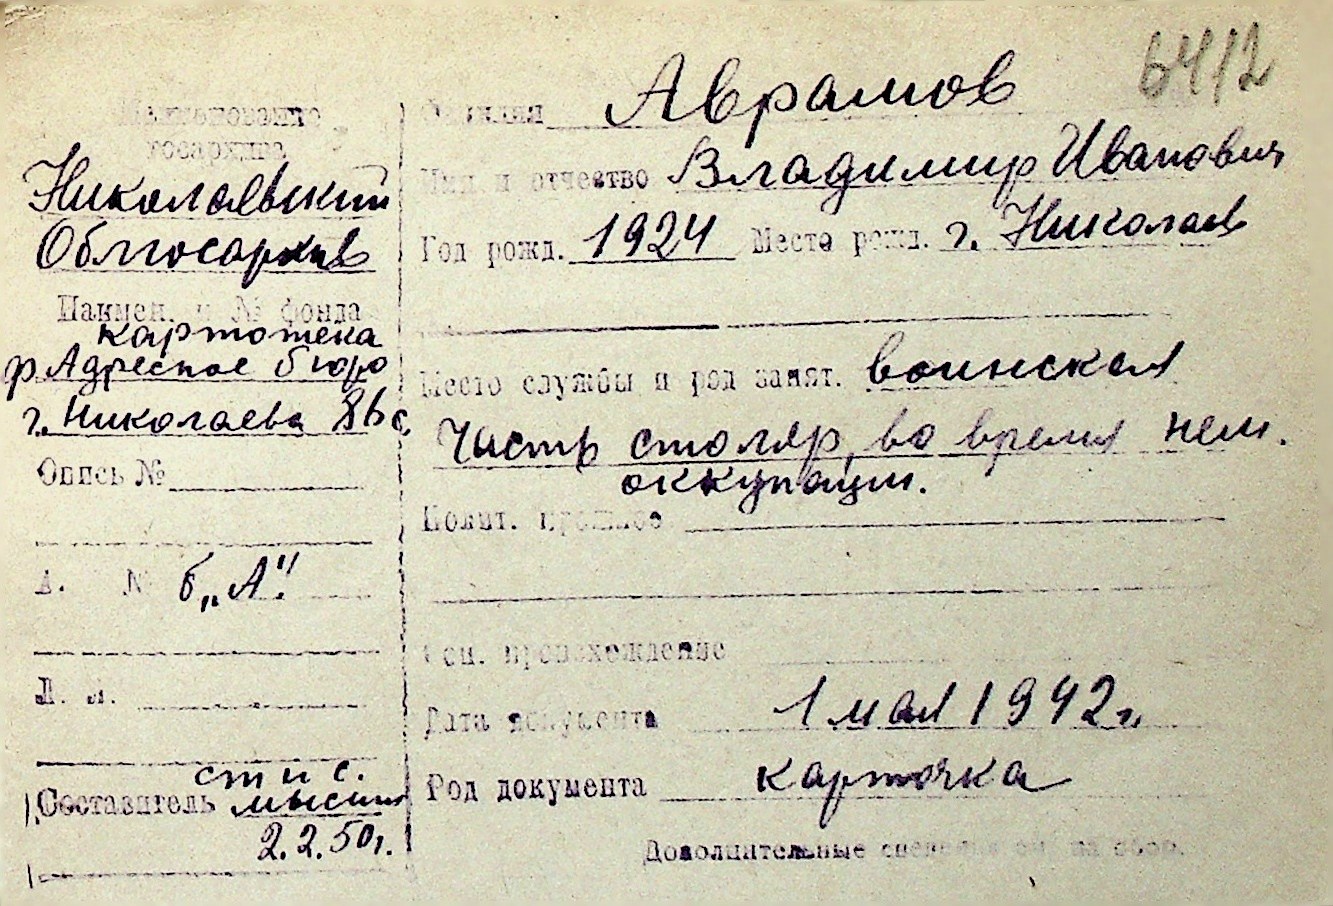 6412
Наименование
госархива
Николаевский
Облгосархив
Наимен. и № фонда
картотека
ф. Адресное бюро
г. Николаева 86 с.
Опись №
№ б„А"
Составитель
2.2.50г.
Фамилия Аврамов
Имя и отчество Владимир Иванович
Год рожд. 1924 Место рожд. г. Николаев
Место службы и род занят. воинская
часть столяр, во время нем.
оккупации.
Полит. прошлое
Соц. происхождение
Дата документа 1 мая 1942 г.
Род документа карточка
Дополнительные сведения см. на обор.